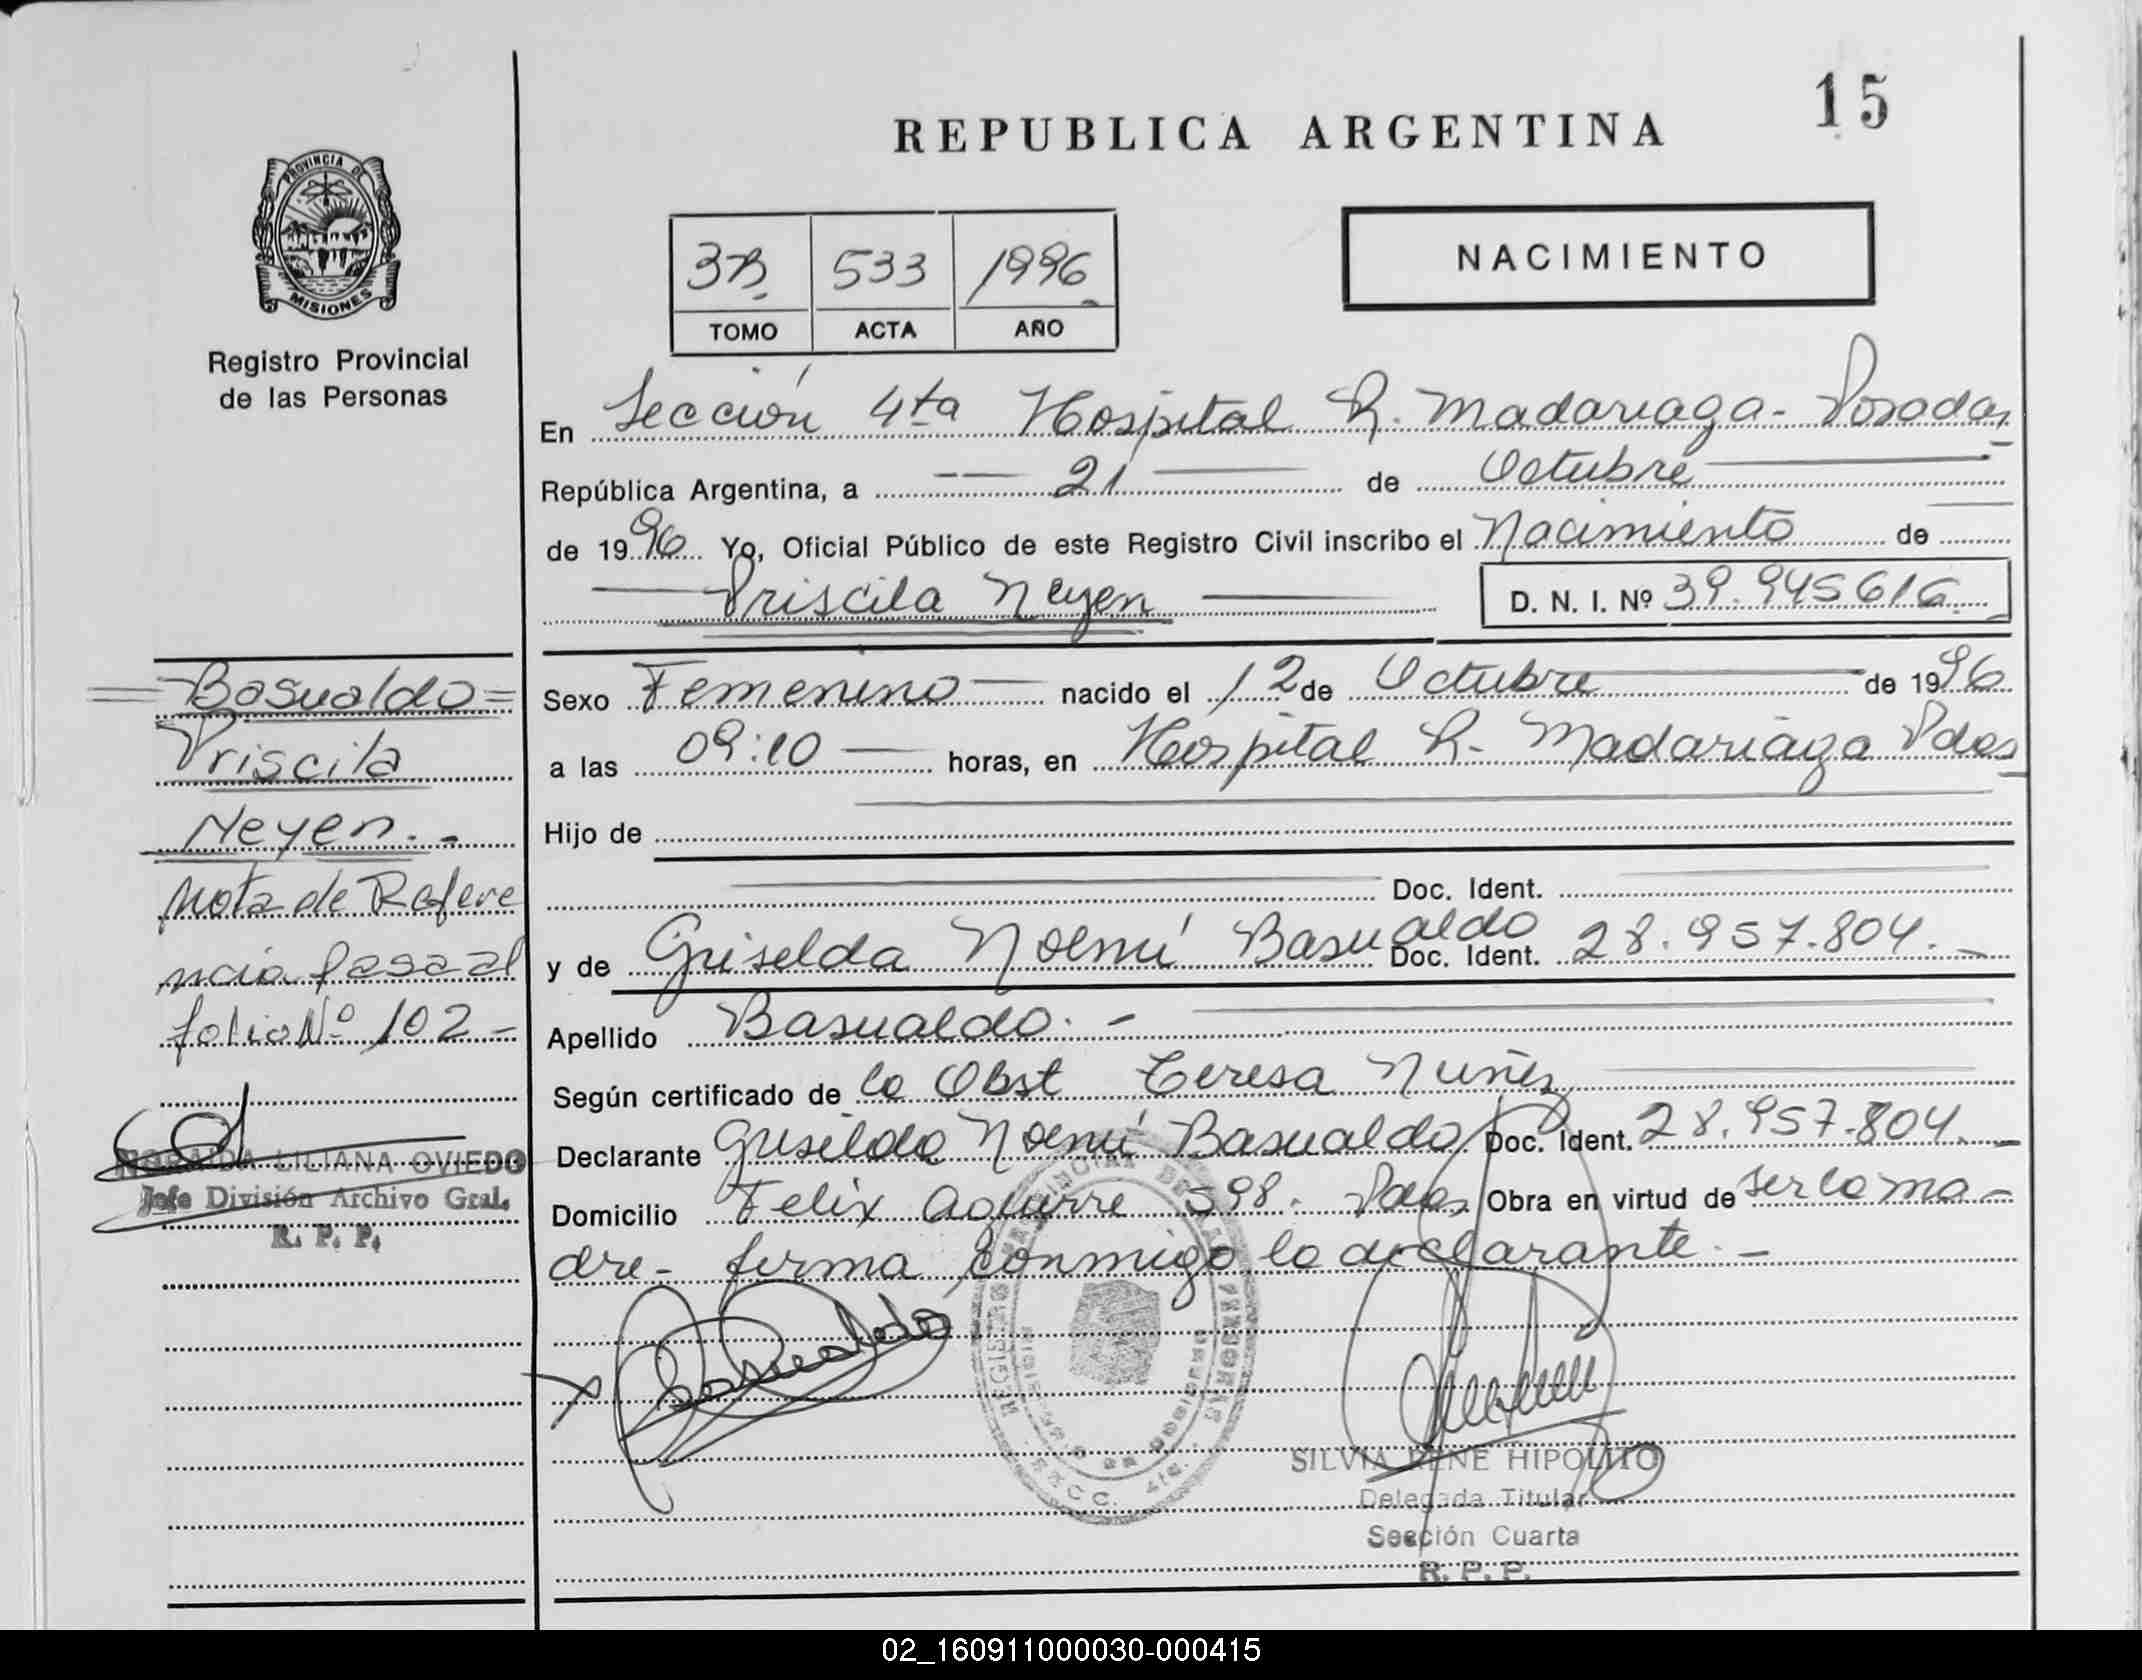 15
REPUBLICA ARGENTINA
PROVINCIA DE
MISIONES
Registro Provincial
de las Personas
NACIMIENTO
3B. 533 1996
TOMO ACTA AÑO
En Sección 4ta Hospital R. Madariaga - Posadas
República Argentina, a 21 de Octubre
de 1996 Yo, Oficial Público de este Registro Civil inscribo el Nacimiento de
Priscila Neyen D. N. I. Nº 39.945616.
Sexo Femenino nacido el 12 de Octubre de 1996
a las 09:10 horas, en Hospital R. Madariaga Pdas
Hijo de
Doc. Ident.
y de Griselda Noemí Basualdo Doc. Ident. 28.957.804. -
Apellido Basualdo. -
Según certificado de la Obst Teresa Nuñez
Declarante Griselda Noemí Basualdo Doc. Ident. 28.957.804. -
Domicilio Felix Aguirre 598. Pdas, Obra en virtud de ser la ma-
dre - firma conmigo la declarante. -
= Basualdo =
Priscila
Neyen. -
Nota de Refere
ncia pasa al
folio Nº 102 -
LILIANA OVIEDO
Jefe División Archivo Gral.
R. P. P.
Basualdo
REGISTRO PROVINCIAL DE LAS PERSONAS
SILVIA RENE HIPOLITO
Delegada Titular
Sección Cuarta
R. P. P.
02_160911000030-000415